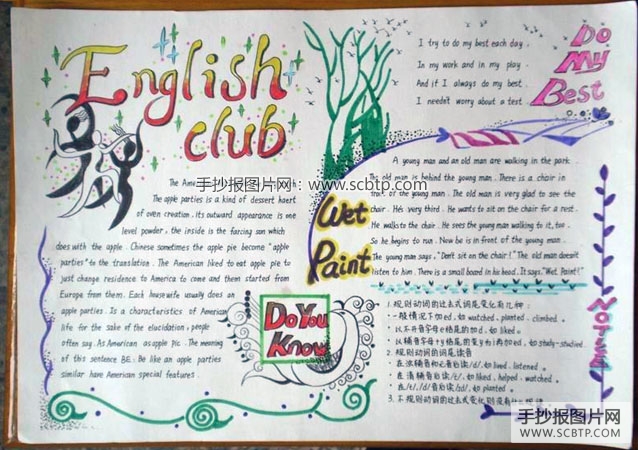 English
club
The Ame
The apple parties is a kind of dessert haert
of oven creation, its outward appearance is one
level powder, the inside is the farcing son which
does with the apple. Chinese sometimes the apple pie become "apple
parties" to the translation. The American liked to eat apple pie to
just change residence to America to come and them started from
Europe from them. Each housewife usually does an
apple parties. Is a characteristics of American
life for the sake of the elucidation, people
often say. As American as apple pic. The meaning
of this sentence BE: Be like an apple parties
similar have American special features.
Do You
Know
I try to do my best each day,
In my work and in my play.
And if I always do my best.
I needn't worry about a test.
Do
My
Best
Wet
Paint
A young man and an old man are walking in the park.
The old man is behind the young man. There is a chair in
front of the young man. The old man is very glad to see the
chair. He's very tired. He wants to sit on the chair for a rest.
He walks to the chair. He sees the young man walking to it, too.
So he begins to run. Now be in front of the young man.
The young man says, "Don't sit on the chair!" The old man doesn't
listen to him. There is a small board in his head. It says, "Wet Paint!"
1. 规则动词的过去式词尾变化有几种:
一般情况下加ed, 如 watched, planted, climbed.
以不发音字母e结尾的加d, 如 liked.
以辅音字母+y结尾的变y为i再加ed, 如 study-studied.
2. 规则动词的词尾读音
在浊辅音和元音后读/d/, 如 lived, listened.
在清辅音后读/t/, 如 liked, helped, watched.
在/t/, /d/音后读/id/, 如 planted.
3. 不规则动词的过去式变化则没有什么规律.
手抄报图片网:www.scbtp.com
手抄报图片网
WWW.SCBTP.COM